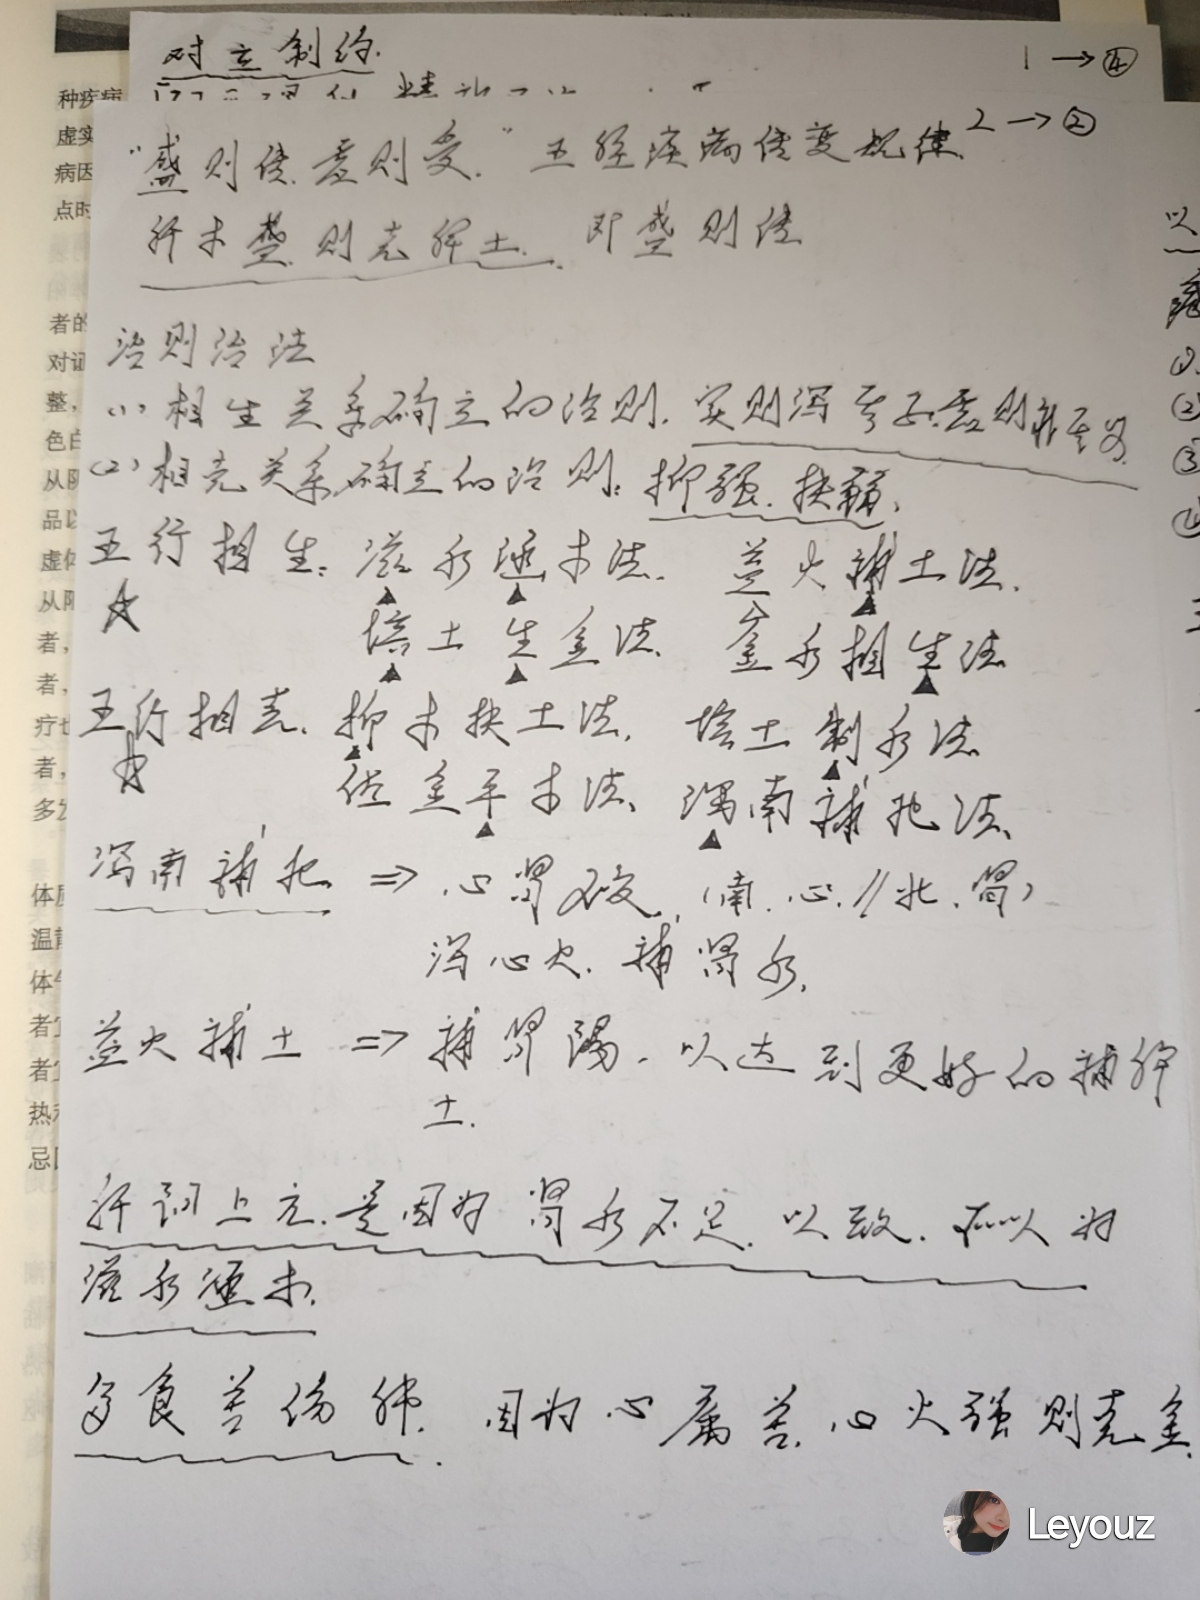 对立制约
1→④
2→②
"盛则传.虚则受."五经疾病传变规律.
肝木盛则克脾土. 即盛则传
治则治法
(1)相生关系确立的治则.实则泻其子.虚则补其母.
(2)相克关系确立的治则:抑强.扶弱.
五行相生:滋水涵木法. 益火补土法.
培土生金法. 金水相生法
五行相克.抑木扶土法. 培土制水法
佐金平木法、泻南补北法、
泻南补北 ⇒ 心肾不交.(南.心.//北.肾)
泻心火.补肾水.
益火补土 ⇒ 补肾阳.以达到更好的补脾
土.
肝阳上亢.是因为肾水不足.以致.所以为
滋水涵木.
多食苦伤肺. 因为心属苦.心火强则克金.
种疾病
虚实
病因
点时
者的
对证
整,
色白
从阴
品以
虚体
从阴
者,
者,
疗也
者,
多发
体质
温
体
者宜
者宜
热
忌
以
②
③
Leyouz